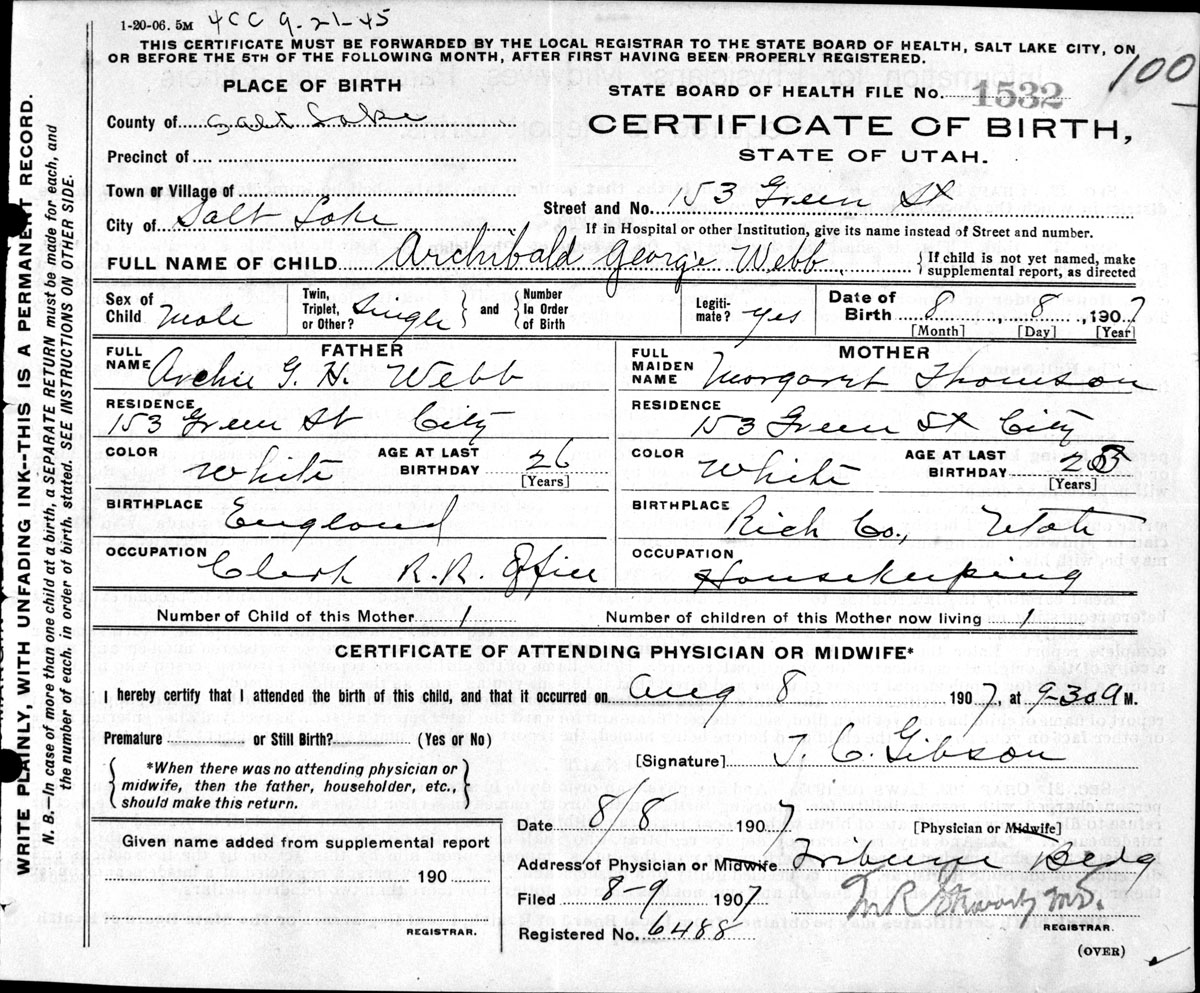 1-20-06. 5M 4CC 9-21-45
THIS CERTIFICATE MUST BE FORWARDED BY THE LOCAL REGISTRAR TO THE STATE BOARD OF HEALTH, SALT LAKE CITY, ON
OR BEFORE THE 5TH OF THE FOLLOWING MONTH, AFTER FIRST HAVING BEEN PROPERLY REGISTERED.
100
PLACE OF BIRTH
STATE BOARD OF HEALTH FILE No. 1532
County of Salt Lake
CERTIFICATE OF BIRTH,
STATE OF UTAH.
Precinct of
Town or Village of
Street and No. 153 Green St
City of Salt Lake
If in Hospital or other Institution, give its name instead of Street and number.
FULL NAME OF CHILD Archibald George Webb { If child is not yet named, make
supplemental report, as directed
Sex of Child Male
Twin, Triplet, or Other? Single } and { Number In Order of Birth
Legiti-mate? Yes
Date of Birth 8, 8, 1907
[Month] [Day] [Year]
FATHER
FULL NAME Archie G. H. Webb
MOTHER
FULL MAIDEN NAME Margaret Thomson
RESIDENCE 153 Green St City
RESIDENCE 153 Green St City
COLOR White AGE AT LAST BIRTHDAY 26 [Years]
COLOR White AGE AT LAST BIRTHDAY 23 [Years]
BIRTHPLACE England
BIRTHPLACE Rich Co., Utah
OCCUPATION Clerk R.R. Office
OCCUPATION Housekeeping
Number of Child of this Mother 1
Number of children of this Mother now living 1
CERTIFICATE OF ATTENDING PHYSICIAN OR MIDWIFE*
I hereby certify that I attended the birth of this child, and that it occurred on Aug 8 1907, at 9-30 a M.
Premature or Still Birth? (Yes or No)
[Signature] T. C. Gibson
{ *When there was no attending physician or
midwife, then the father, householder, etc.,
should make this return. }
Date 8/8 1907 [Physician or Midwife]
Given name added from supplemental report
190
REGISTRAR.
Address of Physician or Midwife Tribune Bldg
Filed 8-9 1907
M.D.
REGISTRAR.
Registered No. 6488
(OVER)
WRITE PLAINLY, WITH UNFADING INK--THIS IS A PERMANENT RECORD.
N. B.—In case of more than one child at a birth, a SEPARATE RETURN must be made for each, and
the number of each, in order of birth, stated. SEE INSTRUCTIONS ON OTHER SIDE.